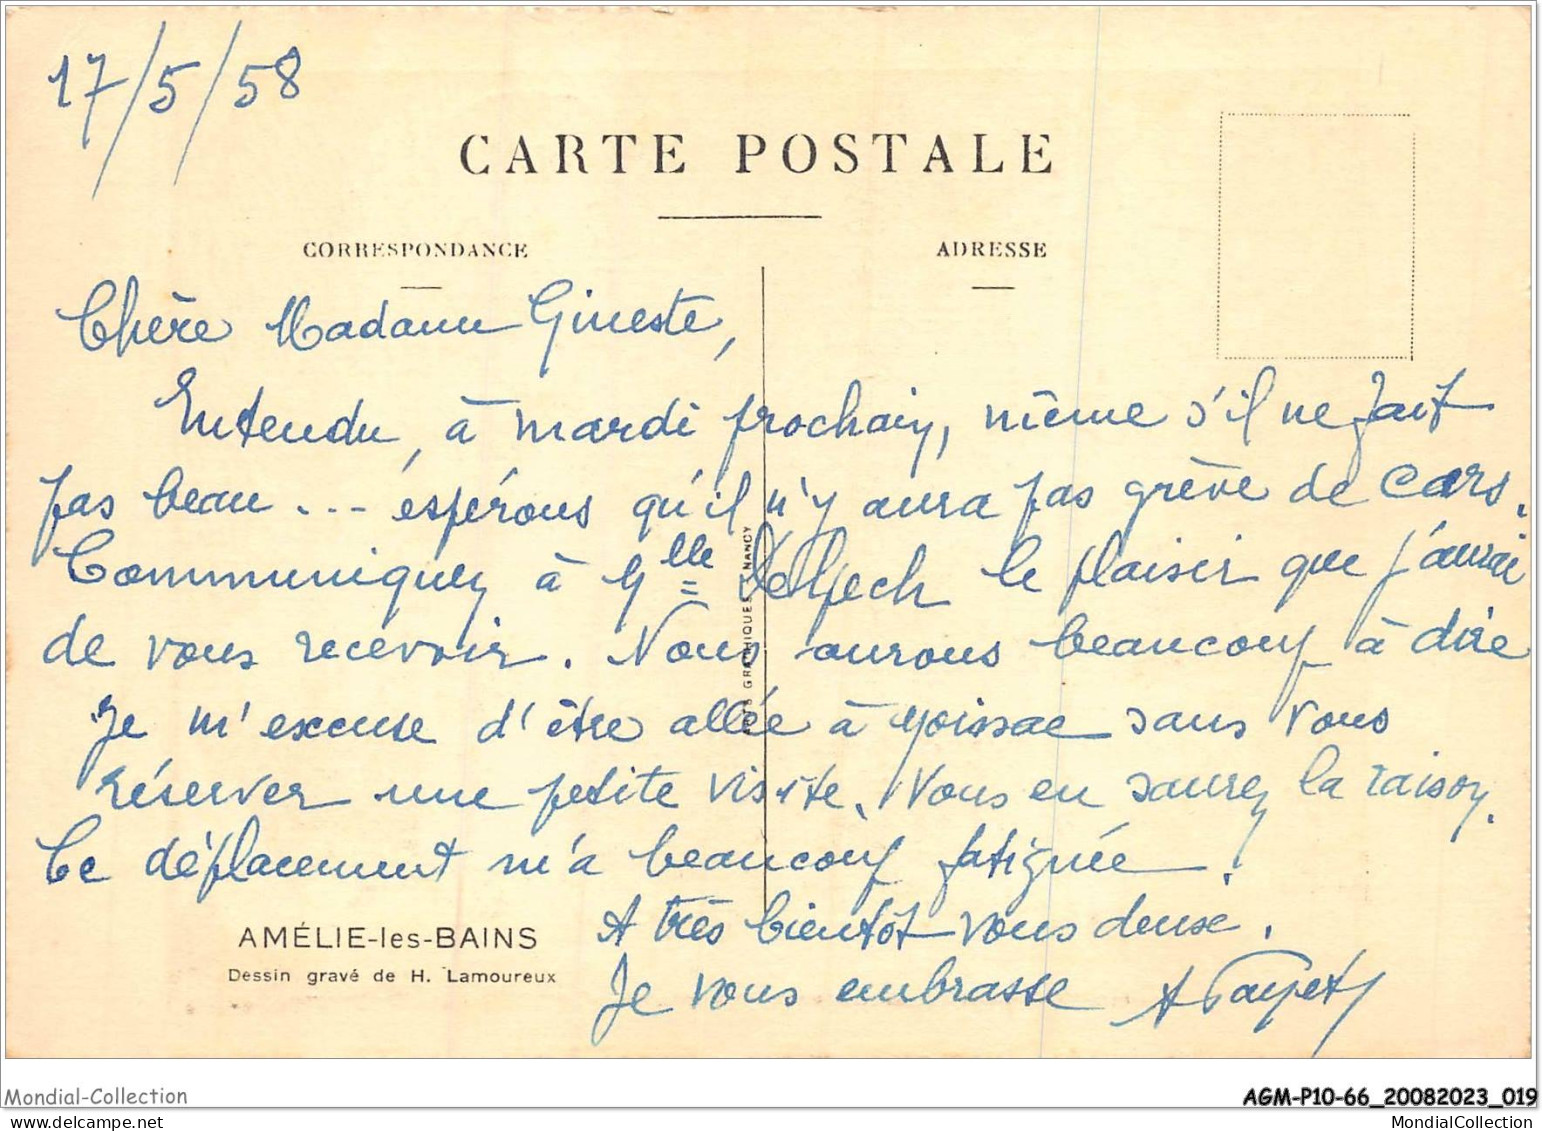 17/5/58
CARTE POSTALE
CORRESPONDANCE
ADRESSE
Chère Madame Gineste,
Entendu, à mardi prochain, même s'il ne fait
pas beau... espérons qu'il n'y aura pas grève de cars.
Communiquez à Mlle Delpech le plaisir que j'aurai
de vous recevoir. Nous aurons beaucoup à dire
Je m'excuse d'être allée à Moissac sans vous
réserver une petite visite. Vous en saurez la raison.
Ce déplacement m'a beaucoup fatiguée.
A très bientôt vous deux.
Je vous embrasse A
AMÉLIE-les-BAINS
Dessin gravé de H. Lamoureux
GRAPHIQUES NANCY
Mondial-Collection
AGM-P10-66_20082023_019
MondialCollection
MondialCollection